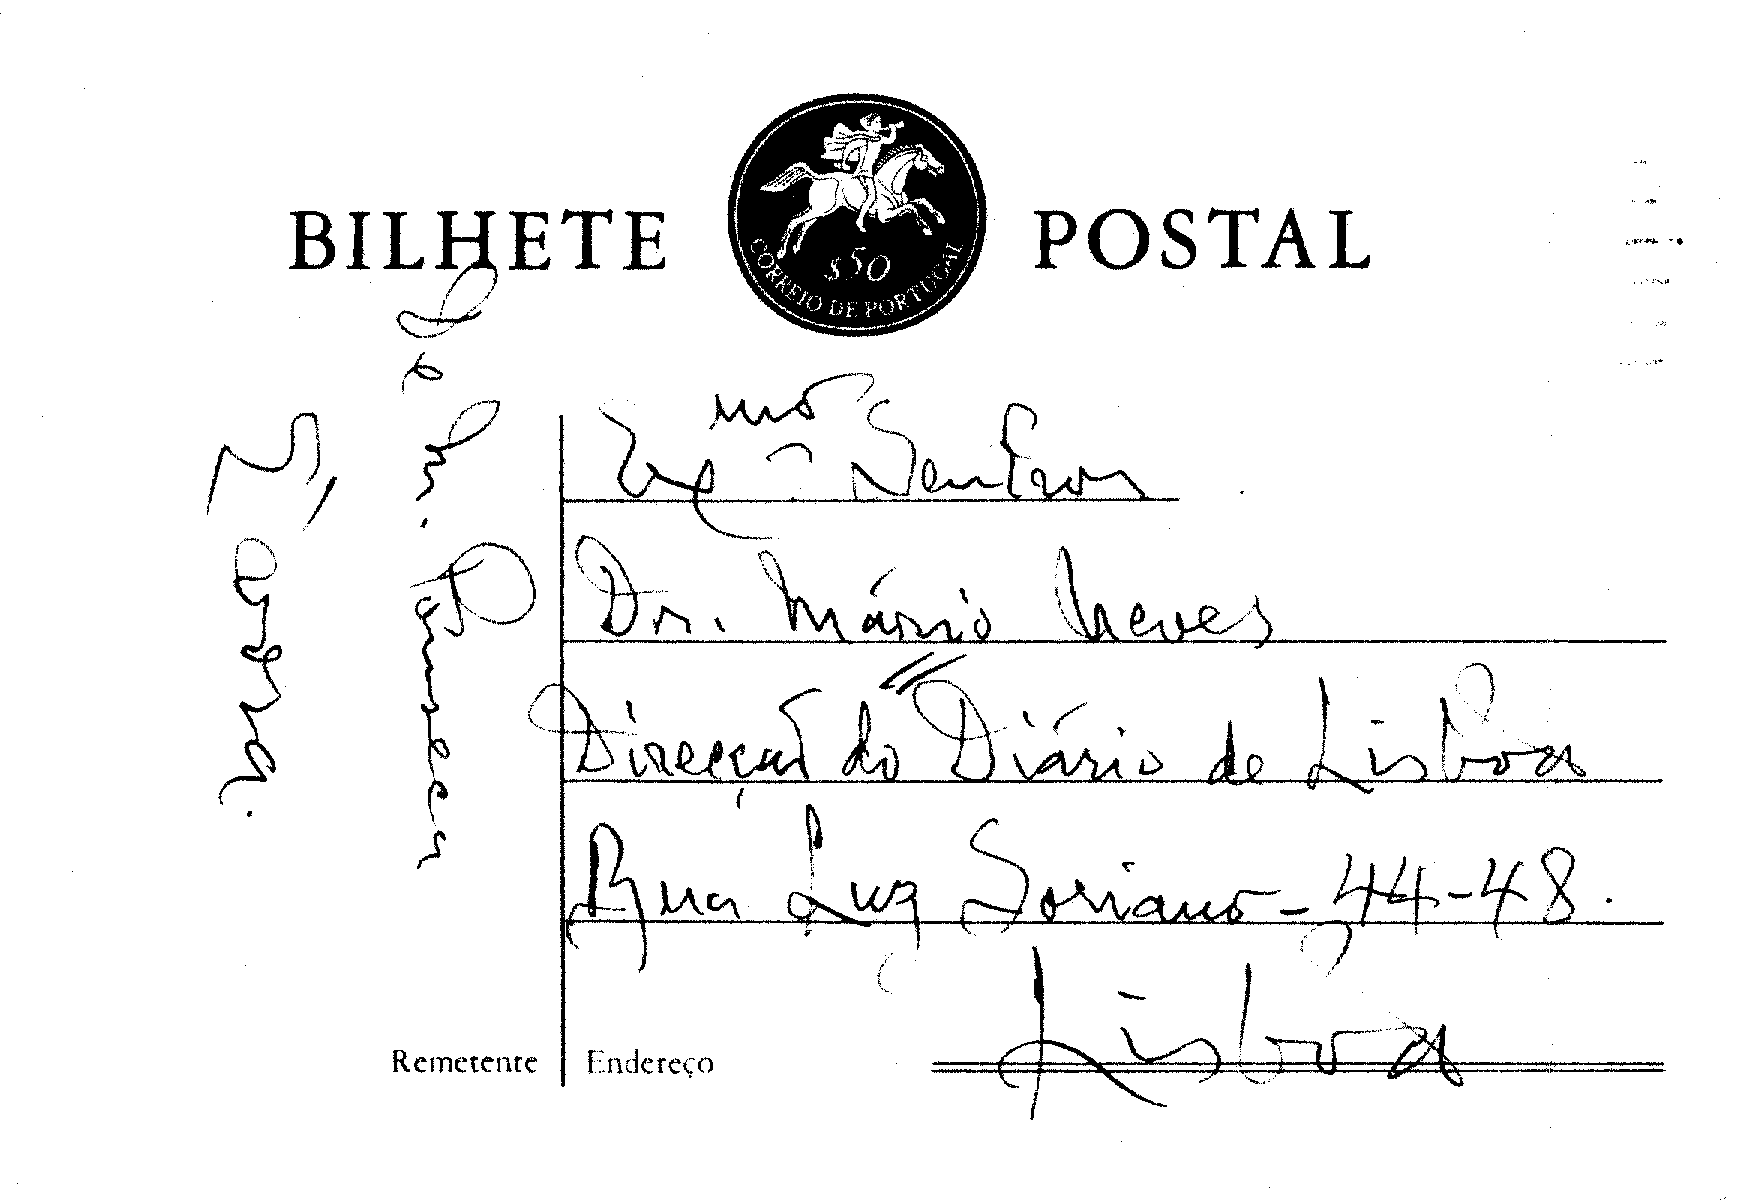 BILHETE POSTAL
$50
CORREIO DE PORTUGAL
Exmo Senhor
Dr. Mário Neves
Direcção do Diário de Lisboa
Rua Luz Soriano - 44-48.
Lisboa
Remetente
Endereço
De M. Fonseca
Évora.